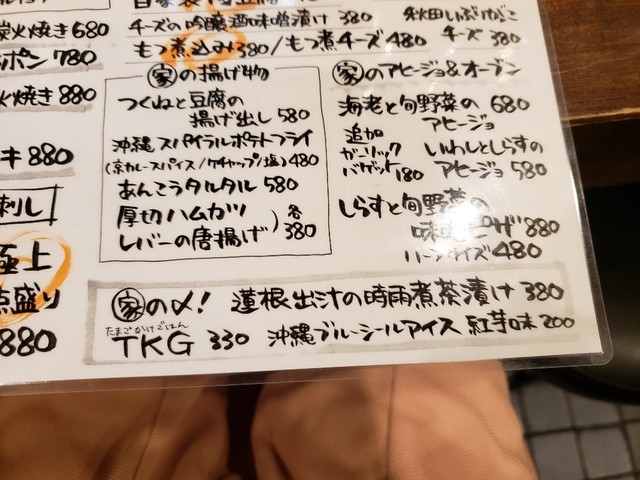 チーズの吟醸酒味噌漬け 380
もつ煮込み 380 / もつ煮チーズ 480
炭火焼き 680
ポン 780
火焼き 880
キ 880
刺し
極上
点盛り
880
秋田いぶりがっこ
チーズ 380
家の揚げ物
つくねと豆腐の
揚げ出し 580
沖縄スパイラルポテトフライ
(京カレースパイス/ケチャップ/塩) 480
あんこうタルタル 580
厚切ハムカツ
レバーの唐揚げ
各
380
家のアヒージョ&オーブン
海老と旬野菜の 680
アヒージョ
追加
ガーリック
バゲット 180
いわしとしらすの
アヒージョ 580
しらすと旬野菜の
ピザ 880
ハーフサイズ 480
家の〆! 蓮根出汁の時雨煮茶漬け 380
たまごかけごはん
TKG 330 沖縄ブルーシールアイス 紅芋味 200